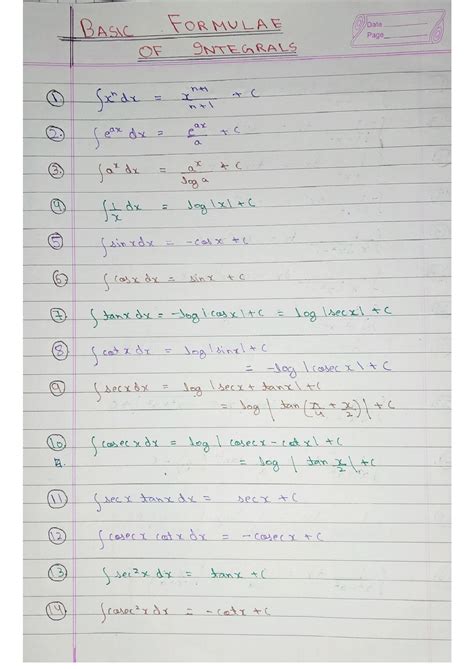 BASIC FORMULAE
OF INTEGRALS
Date
Page
① ∫xⁿ dx = xⁿ⁺¹/n+1 + C
②. ∫e^ax dx = e^ax/a + C
③. ∫a^x dx = a^x/log a + C
④ ∫1/x dx = log|x| + C
⑤ ∫sinx dx = -cosx + C
⑥ ∫cosx dx = sinx + C
⑦ ∫tanx dx = -log|cosx| + C = log|secx| + C
⑧ ∫cotx dx = log|sinx| + C
= -log|cosec x| + C
⑨ ∫secx dx = log|secx + tanx| + C
= log|tan(π/4 + x/2)| + C
⑩ ∫cosec x dx = log|cosec x - cotx| + C
= log|tan x/2| + C
⑪ ∫secx tanx dx = secx + C
⑫ ∫cosec x cotx dx = -cosec x + C
⑬ ∫sec²x dx = tanx + C
⑭ ∫cosec²x dx = -cotx + C